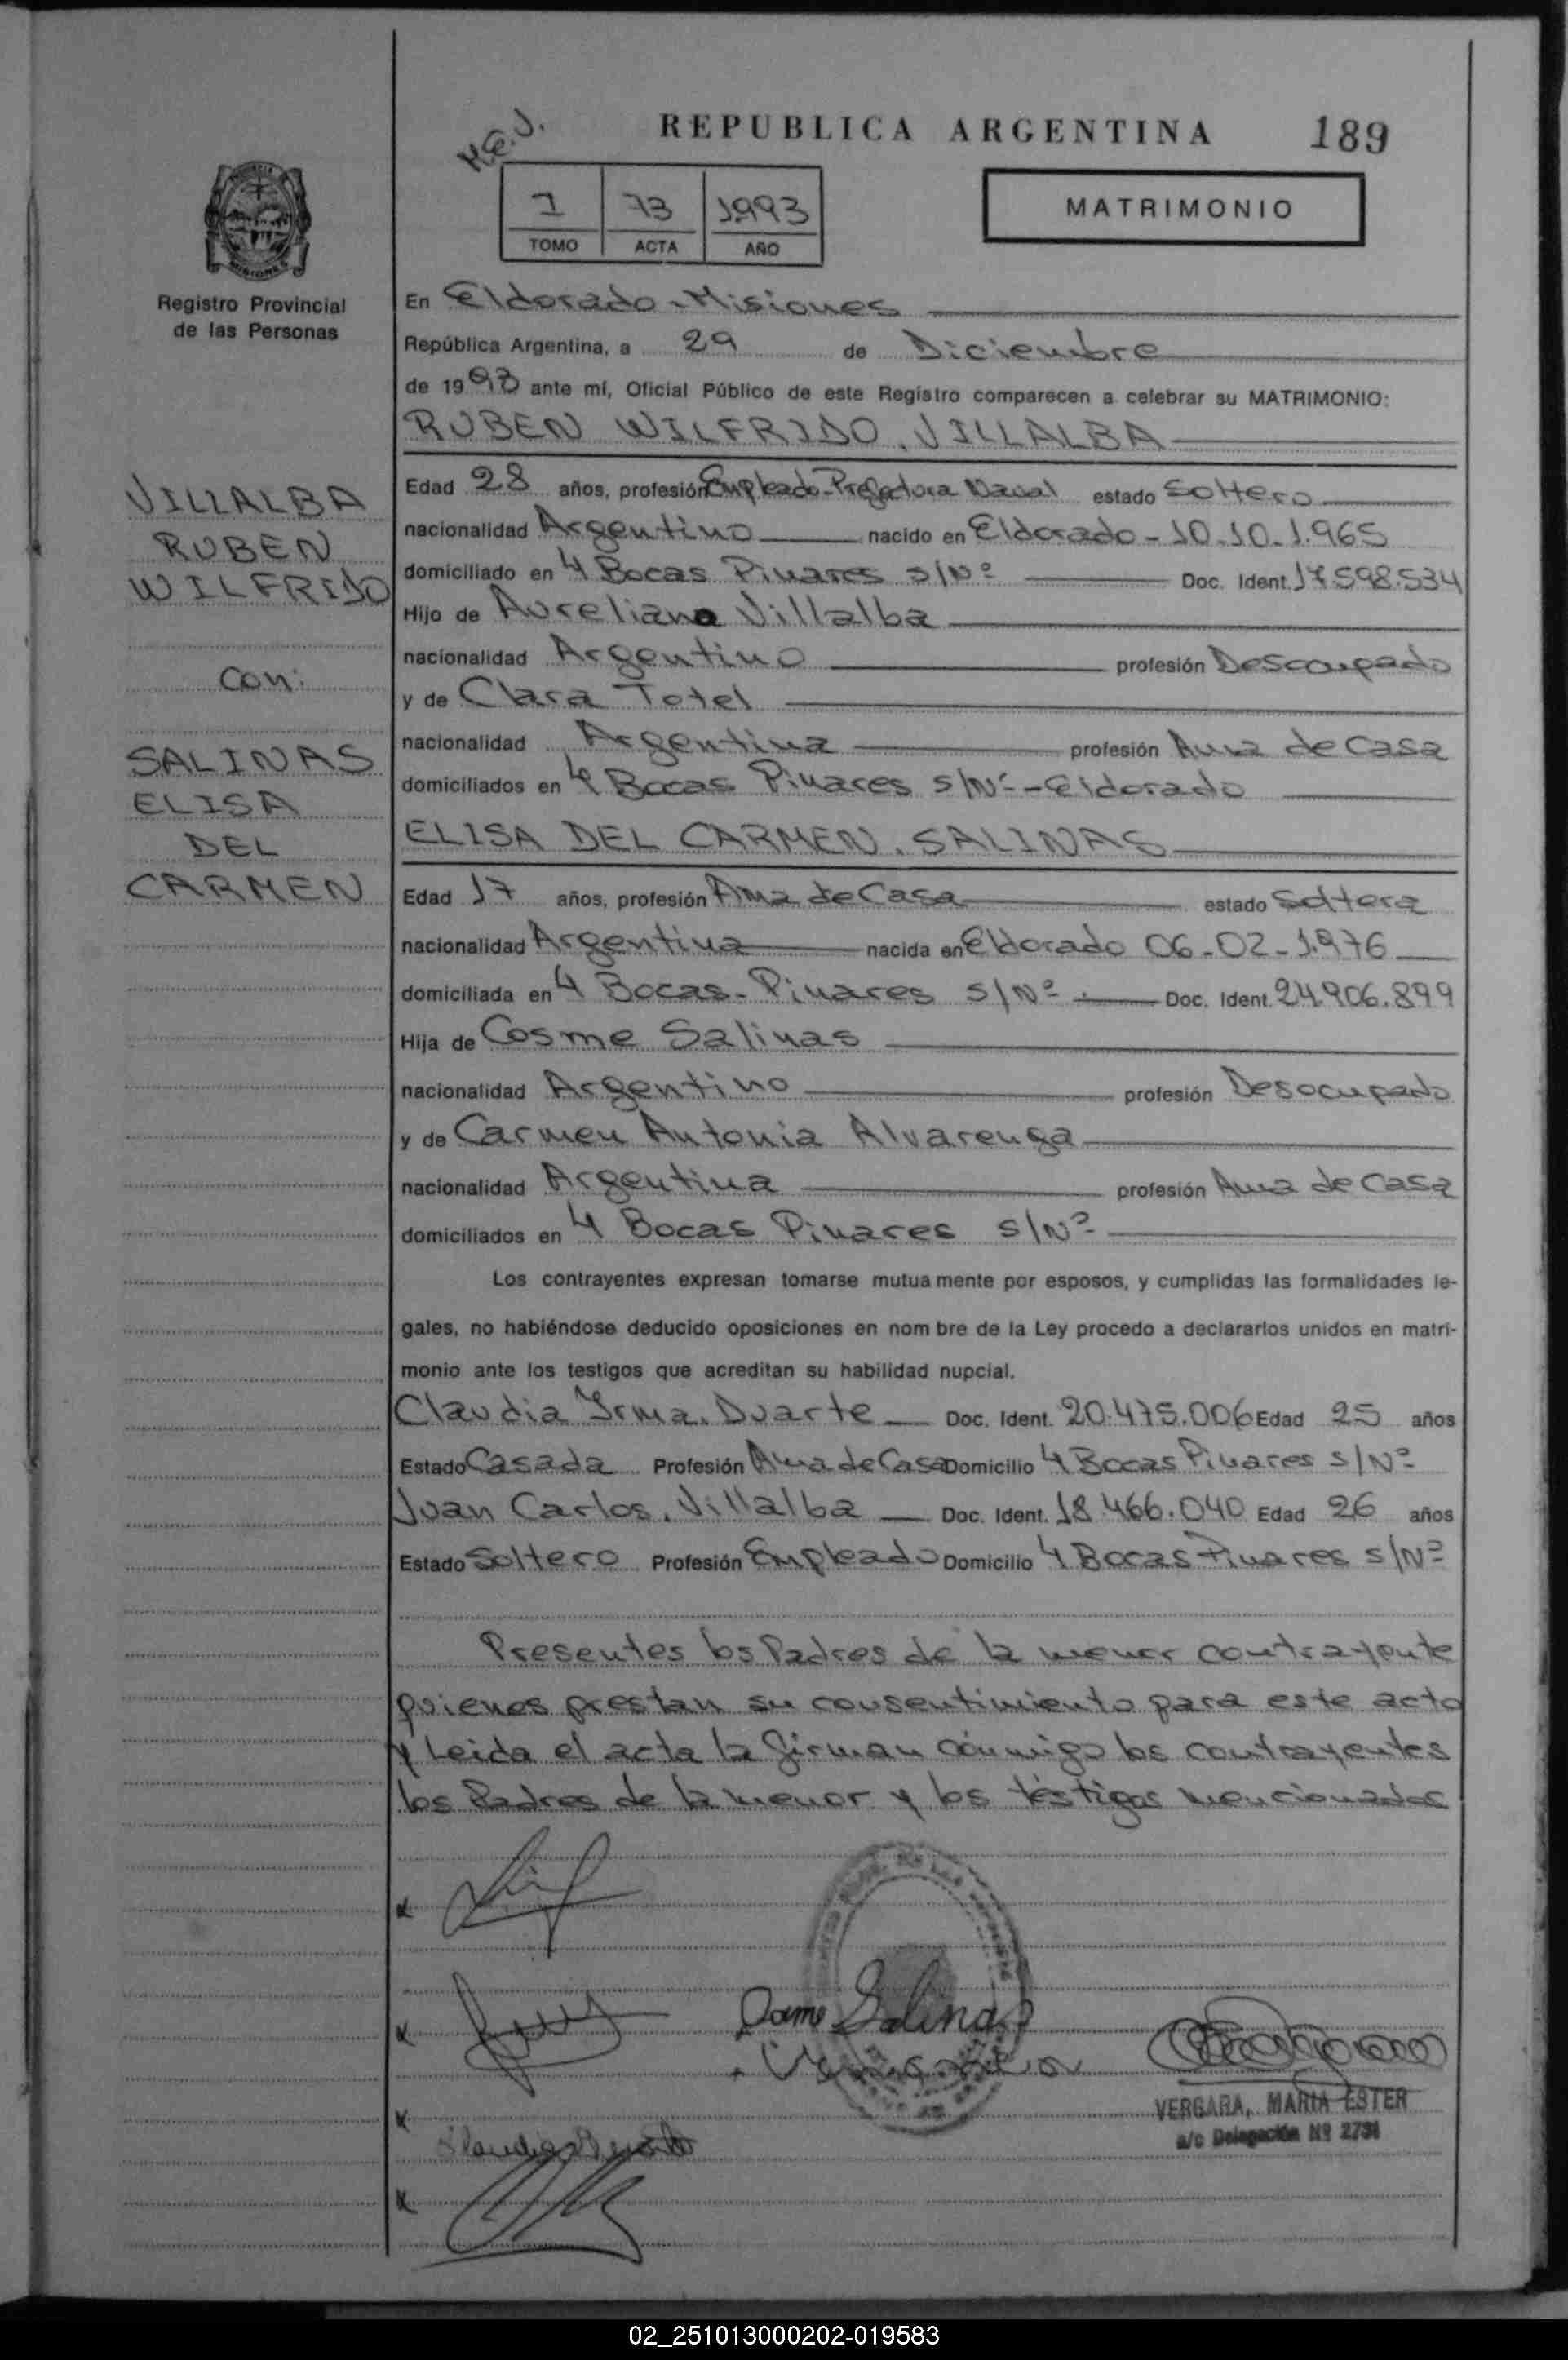 REPUBLICA ARGENTINA
189
1 73 1993
TOMO ACTA AÑO
MATRIMONIO
MISIONES
Registro Provincial
de las Personas
En Eldorado - Misiones
República Argentina, a 29 de Diciembre
de 1993 ante mí, Oficial Público de este Registro comparecen a celebrar su MATRIMONIO:
RUBEN WILFRIDO. VILLALBA
VILLALBA
RUBEN
WILFRIDO
con:
SALINAS
ELISA
DEL
CARMEN
Edad 28 años, profesión Empleado-Prefectura Naval estado Soltero
nacionalidad Argentino nacido en Eldorado - 10.10.1.965
domiciliado en 4 Bocas Pinares s/Nº Doc. Ident. 17.598.534
Hijo de Aureliano Villalba
nacionalidad Argentino profesión Desocupado
y de Clara Totel
nacionalidad Argentina profesión Ama de Casa
domiciliados en 4 Bocas Pinares s/Nº - Eldorado
ELISA DEL CARMEN. SALINAS
Edad 17 años, profesión Ama de Casa estado Soltera
nacionalidad Argentina nacida en Eldorado 06-02-1.976
domiciliada en 4 Bocas - Pinares s/Nº. Doc. Ident. 24.906.899
Hija de Cosme Salinas
nacionalidad Argentino profesión Desocupado
y de Carmen Antonia Alvarenga
nacionalidad Argentina profesión Ama de Casa
domiciliados en 4 Bocas Pinares s/Nº
Los contrayentes expresan tomarse mutua mente por esposos, y cumplidas las formalidades le-
gales, no habiéndose deducido oposiciones en nom bre de la Ley procedo a declararlos unidos en matri-
monio ante los testigos que acreditan su habilidad nupcial.
Claudia Irma. Duarte Doc. Ident. 20.475.006 Edad 25 años
Estado Casada Profesión Ama de Casa Domicilio 4 Bocas Pinares s/Nº
Juan Carlos. Villalba Doc. Ident. 18.466.040 Edad 26 años
Estado Soltero Profesión Empleado Domicilio 4 Bocas Pinares s/Nº
Presentes los Padres de la menor contrayente
quienes prestan su consentimiento para este acto
y Leida el acta la firman conmigo los contrayentes
los Padres de la menor y los testigos mencionados
Salinas
VERGARA, MARIA ESTER
a/c Delegación Nº 2731
02_251013000202-019583